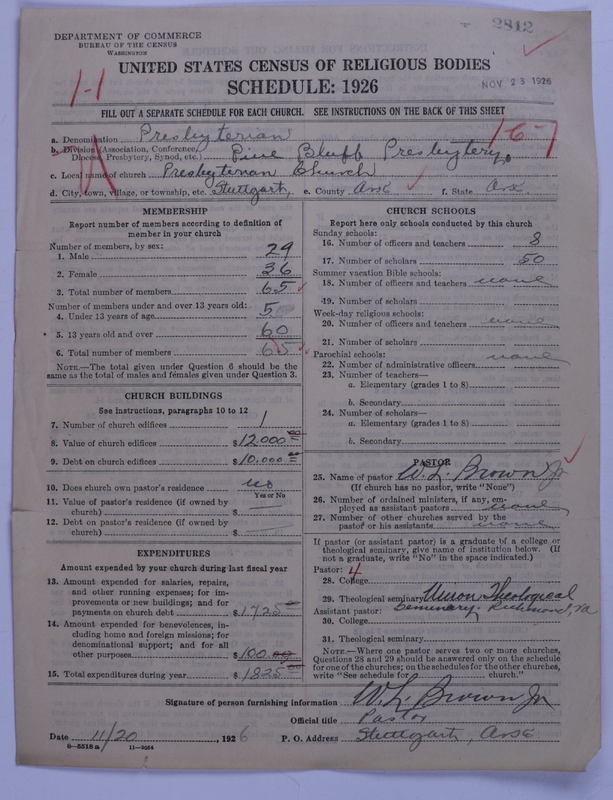 2812
DEPARTMENT OF COMMERCE
BUREAU OF THE CENSUS
WASHINGTON
UNITED STATES CENSUS OF RELIGIOUS BODIES
SCHEDULE: 1926
NOV 23 1926
1-1
FILL OUT A SEPARATE SCHEDULE FOR EACH CHURCH. SEE INSTRUCTIONS ON THE BACK OF THIS SHEET
a. Denomination Presbyterian
16-7
b. Division (Association, Conference, Diocese, Presbytery, Synod, etc.) Pine Bluff Presbytery
c. Local name of church Presbyterian Church
d. City, town, village, or township, etc. Stuttgart, e. County Ark f. State Ark.
MEMBERSHIP
Report number of members according to definition of
member in your church
Number of members, by sex:
1. Male 29
2. Female 36
3. Total number of members 65
Number of members under and over 13 years old:
4. Under 13 years of age 5
5. 13 years old and over 60
6. Total number of members 65
NOTE.—The total given under Question 6 should be the
same as the total of males and females given under Question 3.
CHURCH BUILDINGS
See instructions, paragraphs 10 to 12
7. Number of church edifices 1
8. Value of church edifices $12,000 00
9. Debt on church edifices $10,000 00
10. Does church own pastor's residence no
Yes or No
11. Value of pastor's residence (if owned by
church) $
12. Debt on pastor's residence (if owned by
church) $
EXPENDITURES
Amount expended by your church during last fiscal year
13. Amount expended for salaries, repairs,
and other running expenses; for im-
provements or new buildings; and for
payments on church debt $1725 00
14. Amount expended for benevolences, in-
cluding home and foreign missions; for
denominational support; and for all
other purposes $100.00
15. Total expenditures during year $1825 00
CHURCH SCHOOLS
Report here only schools conducted by this church
Sunday schools:
16. Number of officers and teachers 8
17. Number of scholars 50
Summer vacation Bible schools:
18. Number of officers and teachers none
19. Number of scholars
Week-day religious schools:
20. Number of officers and teachers none
21. Number of scholars
Parochial schools:
22. Number of administrative officers none
23. Number of teachers—
a. Elementary (grades 1 to 8)
b. Secondary
24. Number of scholars—
a. Elementary (grades 1 to 8)
b. Secondary
PASTOR
25. Name of pastor W. L. Brown Jr
(If church has no pastor, write "None")
26. Number of ordained ministers, if any, em-
ployed as assistant pastors none
27. Number of other churches served by the
pastor or his assistants none
If pastor (or assistant pastor) is a graduate of a college or
theological seminary, give name of institution below. (If
not a graduate, write "No" in the space indicated.)
Pastor: 4
28. College
29. Theological seminary Union Theological
Seminary. Richmond, Va
Assistant pastor:
30. College
31. Theological seminary
NOTE.—Where one pastor serves two or more churches,
Questions 28 and 29 should be answered only on the schedule
for one of the churches; on the schedules for the other churches,
write "See schedule for church."
Signature of person furnishing information W. L. Brown Jr
Official title Pastor
Date 11/20, 1926 P. O. Address Stuttgart, Ark
8-5518a 11-9064